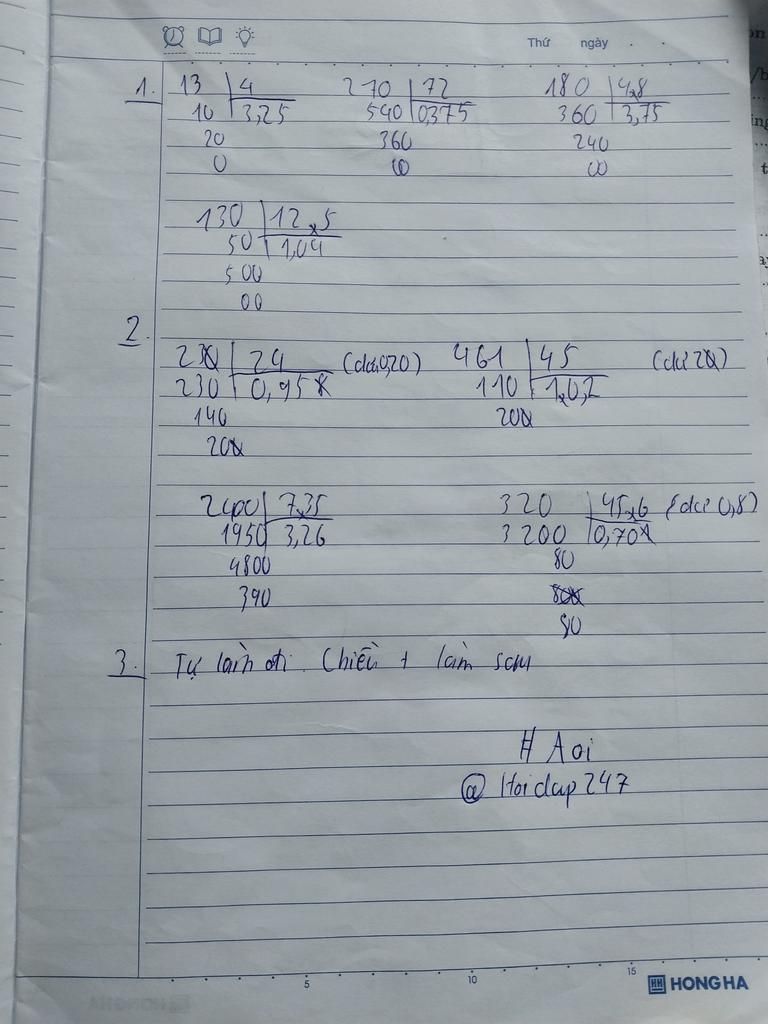 Thứ ngày . .
1. 13 4 270 72 180 4,8
10 3,25 540 0,375 360 3,75
20 360 240
0 00 00
130 12,5
50 1,04
500
00
2.
230 24 (dư 0,20) 461 45 (dư 20)
230 0,95 110 10,2
140 200
200
2400 7,35 320 45,6 (dư 0,8)
1950 3,26 3200 0,70
4800 80
390
80
3. Tự làm đi. Chiều t làm sau
# Aoi
@ Hoidap247
5 10 15
HH HONG HA